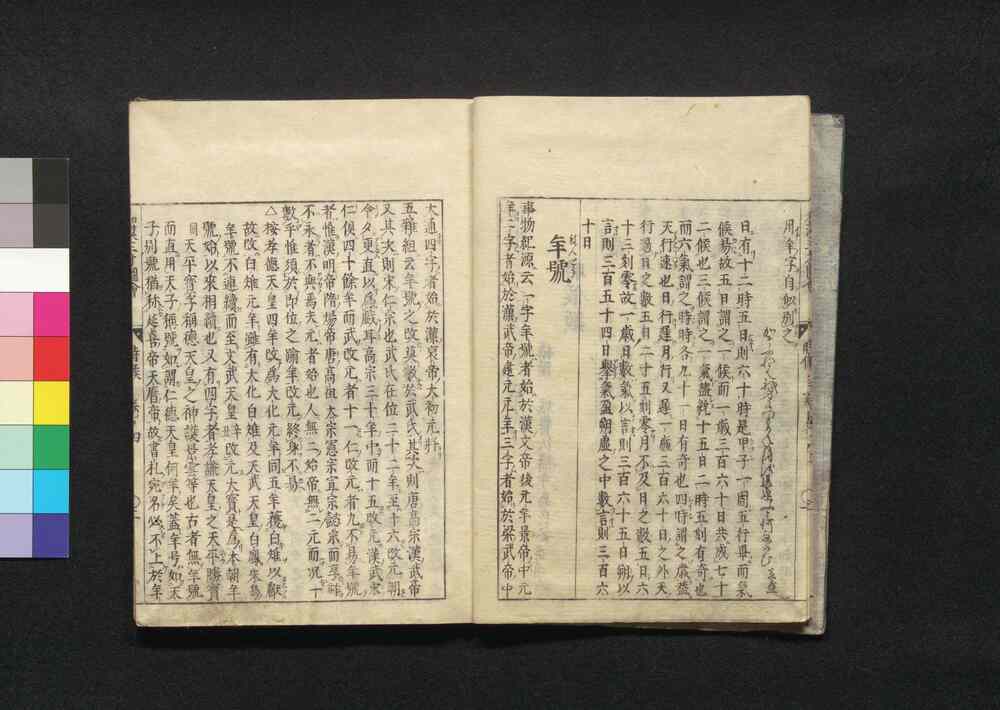 用年字自似別之
日有十二時五日則六十時是甲子一周五行畢而氣
候易故五日謂之一候而一歳三百六十日共成七十
二候也三候謂之一氣盈雖十五日二時五刻有奇也
而六氣謂之時時各九十一日有奇也四時謂之歳盖
天行速也日行遲月行又遲一歳三百六十日之外天
行過日之數五日二十五刻零月不及日之數五日六
十三刻零故一歳日數氣以言則三百六十五日朔以
言則三百五十四日擧氣盈朔虚之中數言則三百六
十日
年號
事物紀源云一字年號者始於漢文帝後元年景帝中元
年二字者始於漢武帝建元元年三字者始於梁武帝中
大通四字者始於漢哀帝大初元將
五雜組云年號之改莫數於武氏其次則唐高宗漢武帝
又其次則宋仁宗也武氏在位二十二年至十六改元朝
令夕更直以爲戯耳高宗三十年中而十五改元漢武宋
仁俱四十餘年而武改元者十一仁改元者九不易年號
者惟漢明帝隋煬帝唐高祖太宗憲宗宣宗懿宗而享祚
不永者不與焉夫元者始也人無二始帝無二元而況十
數乎惟須於即位之踰年改元終身不易
△按孝德天皇四年改爲大化元年同五年獲白雉以獻
故改白雉元年雖有大化白雉及天武天皇白鳳朱鳥
年號不連續而至文武天皇改元大寳是爲本朝年
號始以來相續也又有四字者孝謙天皇之天平勝寳
天平寳字稱德天皇之神護景雲等也古者無年號
而直用天子稱號如謂仁德天皇何年矣蓋年号如天
子別號猶称延喜帝天曆帝故書札宛名必不上於年